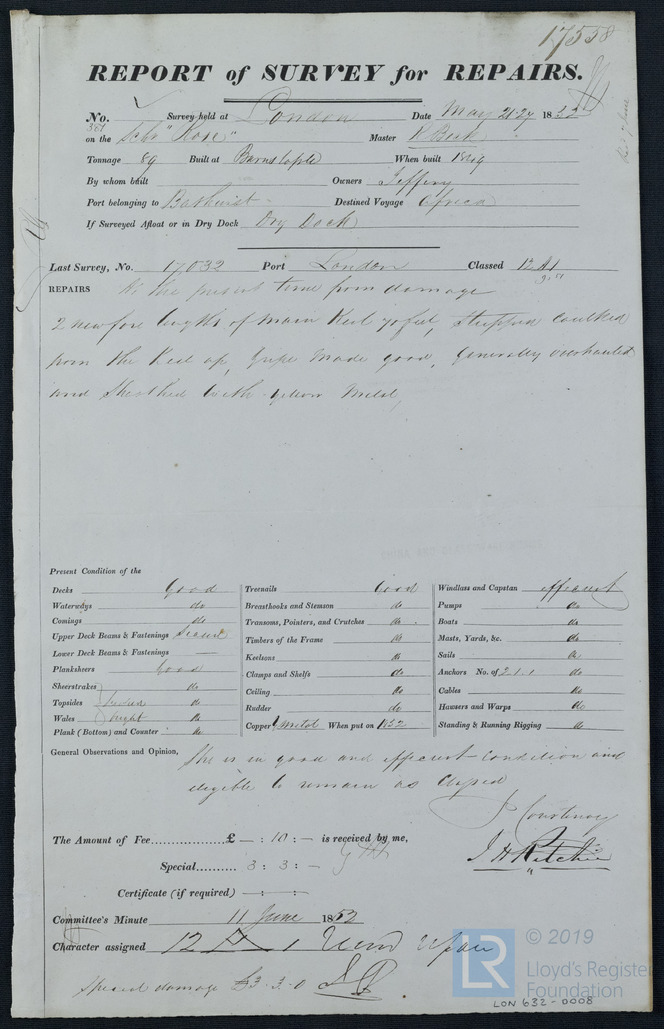 17558
REPORT of SURVEY for REPAIRS.
No. 361 Survey held at London Date May 21.27 1852
on the Schr "Rose" Master R Beck
Tonnage 89 Built at Barnstaple When built 1849
By whom built Owners Jeffery
Port belonging to Bathurst Destined Voyage Africa
If Surveyed Afloat or in Dry Dock Dry Dock
Last Survey, No. 17032 Port London Classed 12 A1
9.51
REPAIRS At the present time from damage
2 new fore lengths of Main Keel 70 feet, Stripped Caulked
from the Keel up, Gripe Made good, Generally overhauled
and Sheathed with yellow Metal,
Present Condition of the
Decks Good
Waterways do
Comings do
Upper Deck Beams & Fastenings Sound
Lower Deck Beams & Fastenings —
Planksheers Good
Sheerstrakes do
Topsides do
Wales bright do
Plank (Bottom) and Counter do
Treenails Good
Breasthooks and Stemson do
Transoms, Pointers, and Crutches do
Timbers of the Frame do
Keelsons do
Clamps and Shelfs do
Ceiling do
Rudder do
Copper Y Metal When put on 1852
Windlass and Capstan efficient
Pumps do
Boats do
Masts, Yards, &c. do
Sails do
Anchors No. of 2.1.1 do
Cables do
Hawsers and Warps do
Standing & Running Rigging do
General Observations and Opinion, She is in good and efficient condition and
eligible to remain as Classed
J Courtenay
J H Ritchie
The Amount of Fee £ — : 10 : — is received by me,
Special 3 : 3 : —
Certificate (if required) — : — : —
Committee's Minute 11 June 1852
Character assigned 12 A 1
Special damage £3.3.0
LR © 2019
Lloyd's Register
Foundation
LON 632-0008